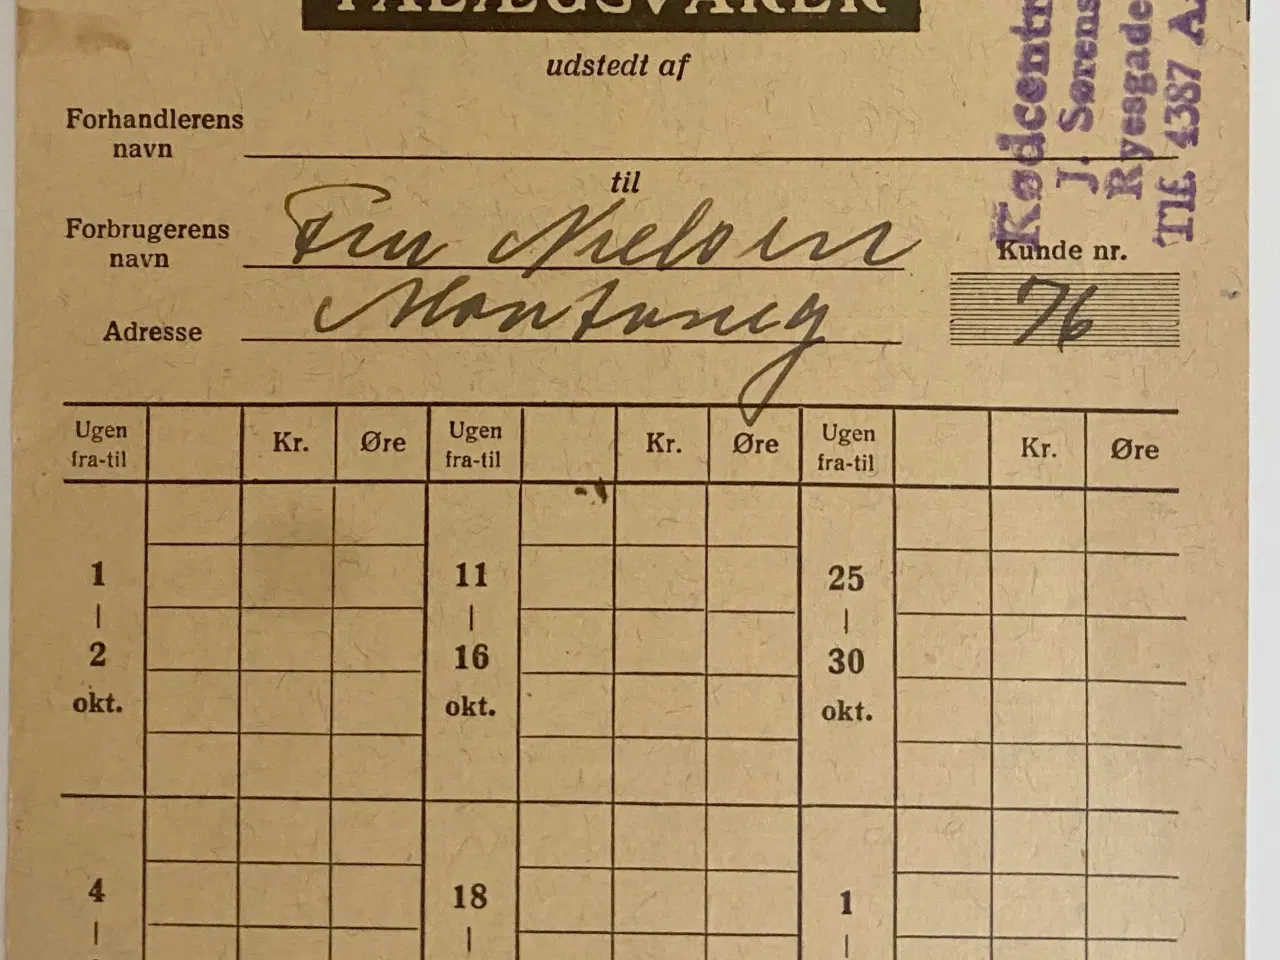 PÅLÆGSVARER
udstedt af
Forhandlerens
navn
til
Forbrugerens
navn
Fru Nielsen
Kunde nr.
76
Adresse
Kødcentr
J. Sørens
Ryesgade
Tlf. 4387 A
Ugen fra-til Kr. Øre Ugen fra-til Kr. Øre Ugen fra-til Kr. Øre
1 11 25
| | |
2 16 30
okt. okt. okt.
4 18 1
| | |